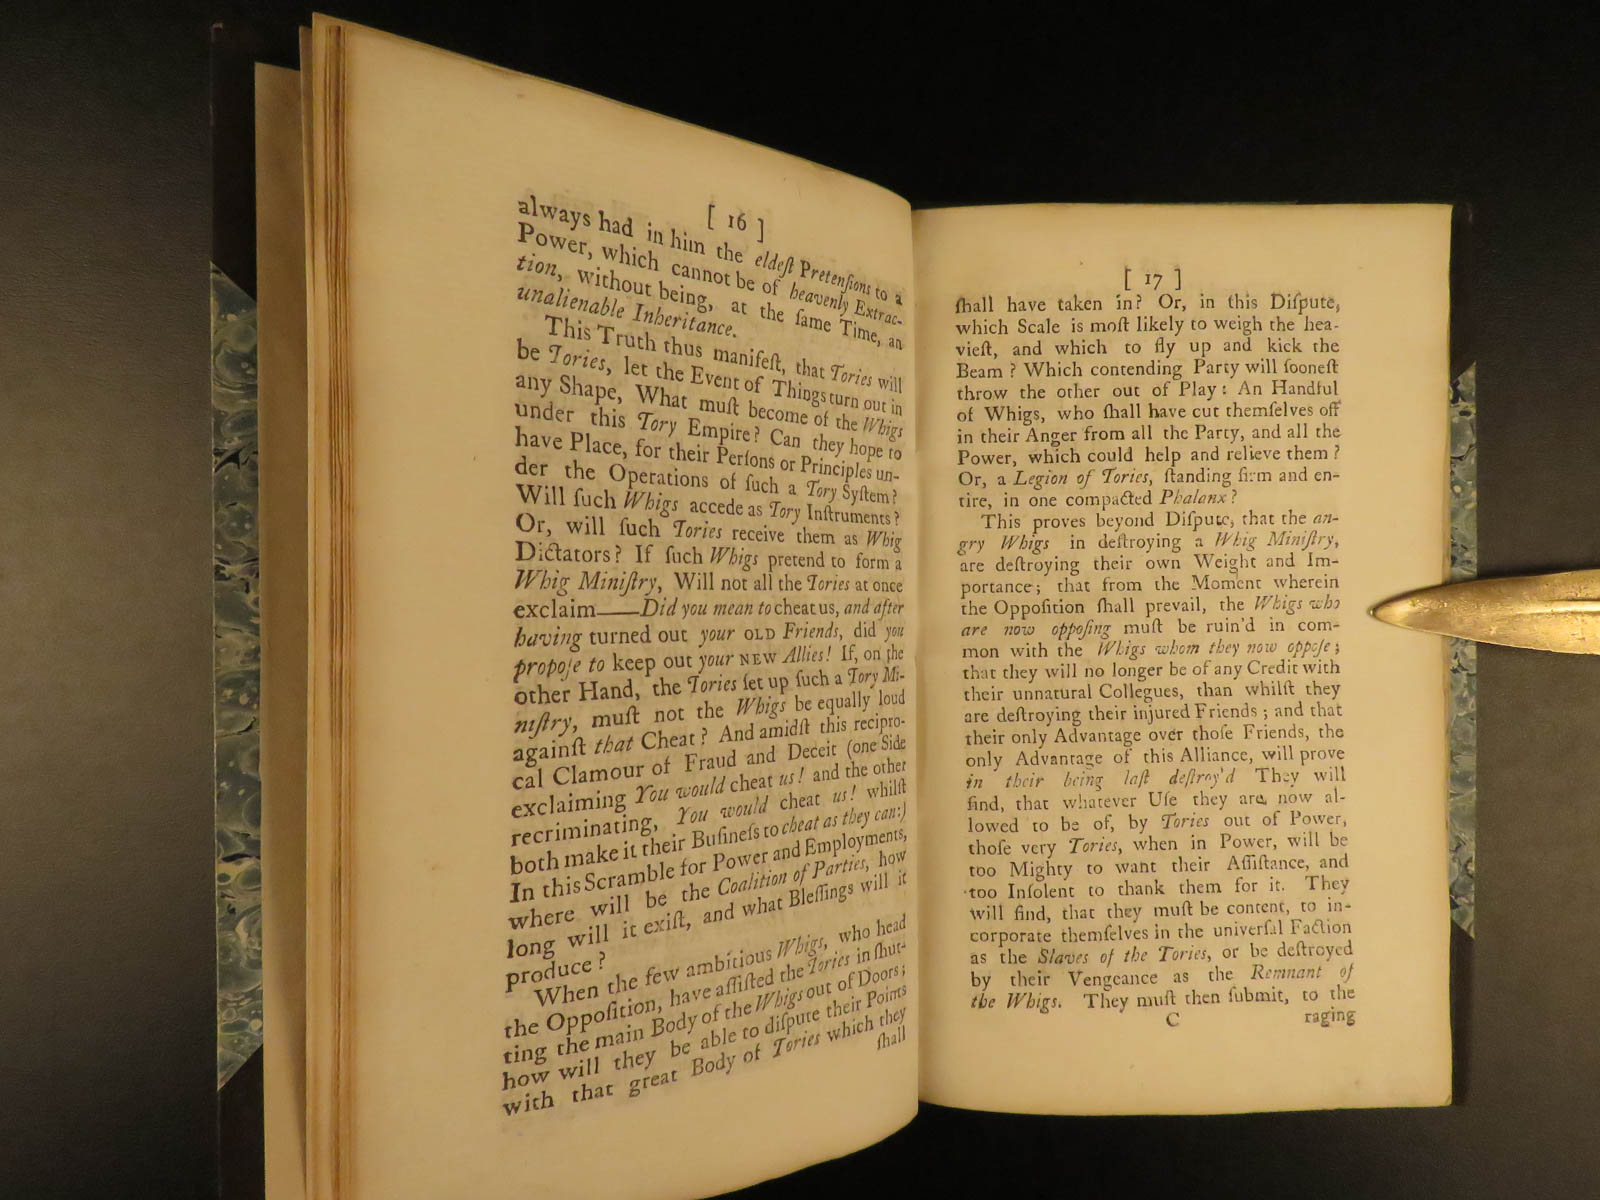 [ 16 ]
always had in him the eldeſt Pretenſions to a
Power, which cannot be of heavenly Extrac-
tion, without being, at the ſame Time, an
unalienable Inheritance.
This Truth thus manifeſt, that Tories will
be Tories, let the Event of Things turn out in
any Shape, What muſt become of the Whigs
under this Tory Empire? Can they hope to
have Place, for their Perſons or Principles un-
der the Operations of ſuch a Tory Syſtem?
Will ſuch Whigs accede as Tory Inſtruments?
Or, will ſuch Tories receive them as Whig
Dictators? If ſuch Whigs pretend to form a
Whig Miniſtry, Will not all the Tories at once
exclaim——Did you mean to cheat us, and after
having turned out your OLD Friends, did you
propoſe to keep out your NEW Allies! If, on the
other Hand, the Tories ſet up ſuch a Tory Mi-
niſtry, muſt not the Whigs be equally loud
againſt that Cheat? And amidſt this recipro-
cal Clamour of Fraud and Deceit (one Side
exclaiming You would cheat us! and the other
recriminating, You would cheat us! whilſt
both make it their Buſineſs to cheat as they can:)
In this Scramble for Power and Employments,
where will be the Coalition of Parties, how
long will it exiſt, and what Bleſſings will it
produce?
When the few ambitious Whigs, who head
the Oppoſition, have aſſiſted the Tories in ſhut-
ting the main Body of the Whigs out of Doors;
how will they be able to diſpute their Points
with that great Body of Tories which they
ſhall
[ 17 ]
ſhall have taken in? Or, in this Diſpute,
which Scale is moſt likely to weigh the hea-
vieſt, and which to fly up and kick the
Beam? Which contending Party will ſooneſt
throw the other out of Play: An Handful
of Whigs, who ſhall have cut themſelves off
in their Anger from all the Party, and all the
Power, which could help and relieve them?
Or, a Legion of Tories, ſtanding firm and en-
tire, in one compacted Phalanx?
This proves beyond Diſpute, that the an-
gry Whigs in deſtroying a Whig Miniſtry,
are deſtroying their own Weight and Im-
portance; that from the Moment wherein
the Oppoſition ſhall prevail, the Whigs who
are now oppoſing muſt be ruin'd in com-
mon with the Whigs whom they now oppoſe;
that they will no longer be of any Credit with
their unnatural Collegues, than whilſt they
are deſtroying their injured Friends; and that
their only Advantage over thoſe Friends, the
only Advantage of this Alliance, will prove
in their being laſt deſtroy'd They will
find, that whatever Uſe they are now al-
lowed to be of, by Tories out of Power,
thoſe very Tories, when in Power, will be
too Mighty to want their Aſſiſtance, and
too Inſolent to thank them for it. They
will find, that they muſt be content, to in-
corporate themſelves in the univerſal Faction
as the Slaves of the Tories, or be deſtroyed
by their Vengeance as the Remnant of
the Whigs. They muſt then ſubmit, to the
C raging